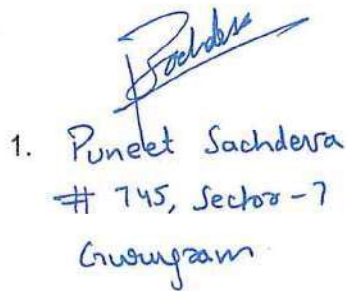 Sachdeva
1. Puneet Sachdeva
# 745, Sector-7
Gurugram